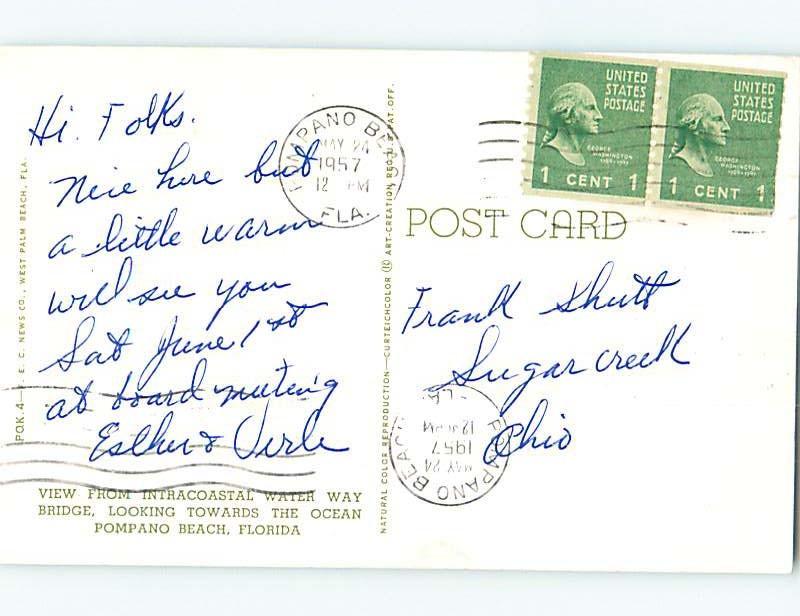 Hi. Folks.
Nice here but
a little warm
will see you
Sat June 1st
at board meeting
Esther & Verle
VIEW FROM INTRACOASTAL WATER WAY
BRIDGE, LOOKING TOWARDS THE OCEAN
POMPANO BEACH, FLORIDA
POK.4—F. E. C. NEWS CO., WEST PALM BEACH, FLA.
NATURAL COLOR REPRODUCTION—CURTEICHCOLOR ® ART-CREATION REG. U.S. PAT. OFF.
POMPANO BEACH
MAY 24
1957
12 PM
FLA.
UNITED
STATES
POSTAGE
GEORGE
WASHINGTON
1789-1797
1 CENT 1
UNITED
STATES
POSTAGE
GEORGE
WASHINGTON
1789-1797
1 CENT 1
POST CARD
Frank Shutt
Sugarcreek
Ohio
POMPANO BEACH
MAY 24
1957
12 PM
FLA.